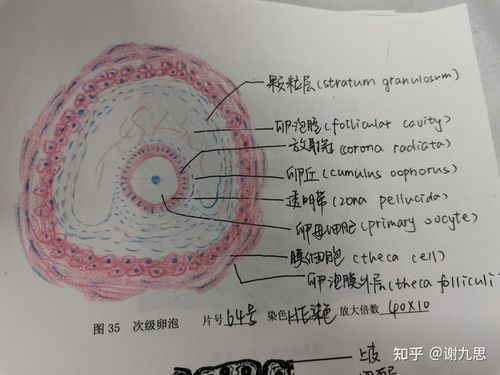 颗粒层(stratum granulosum)
卵泡腔(follicular cavity)
放射冠(corona radiata)
卵丘(cumulus oophorus)
透明带(zona pellucida)
卵母细胞(primary oocyte)
膜细胞(theca cell)
卵泡膜外层(theca folliculi
图 35 次级卵泡 片号 64号 染色 HE染色 放大倍数 40×10
上皮
知乎 @谢九思